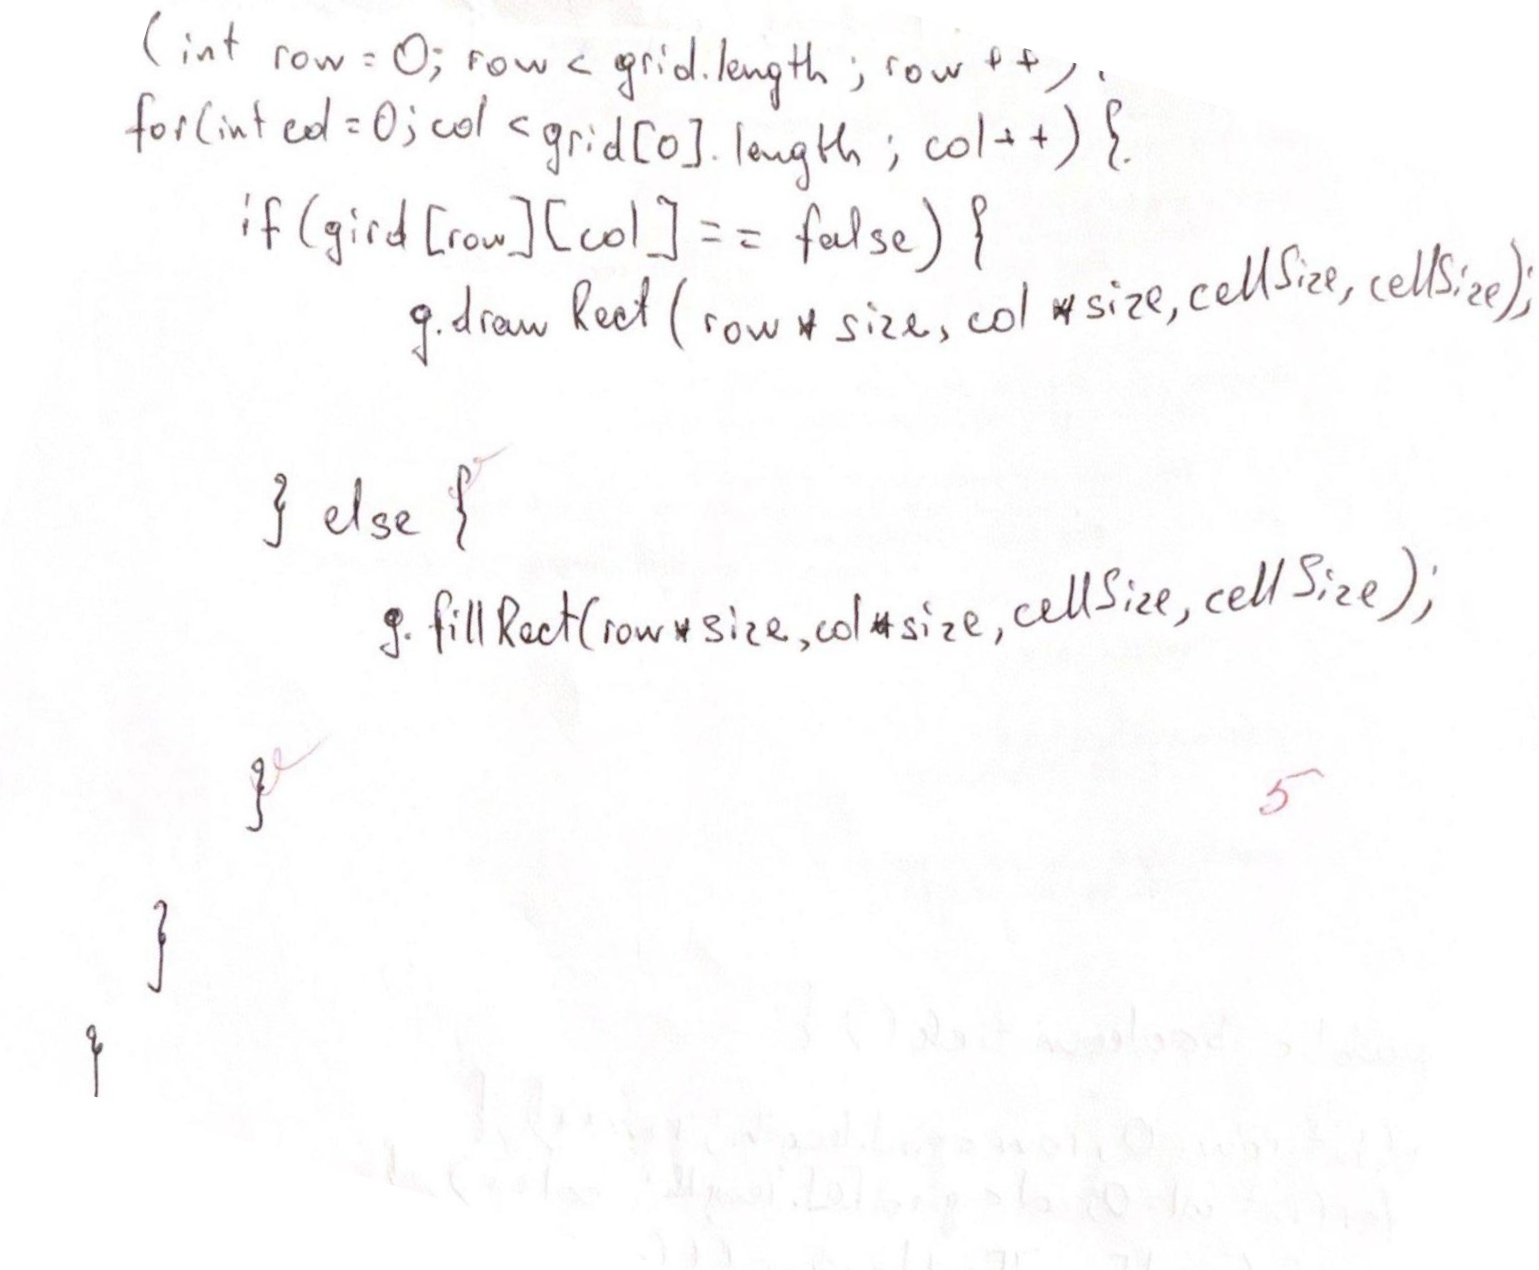 (int row = 0; row < grid.length; row ++)
for(int col = 0; col < grid[0].length; col++) {
if (gird [row][col] == false) {
g.draw Rect ( row * size, col * size, cellSize, cellSize);
} else {
g. fillRect(row * size, col * size, cellSize, cellSize);
}
5
}
}